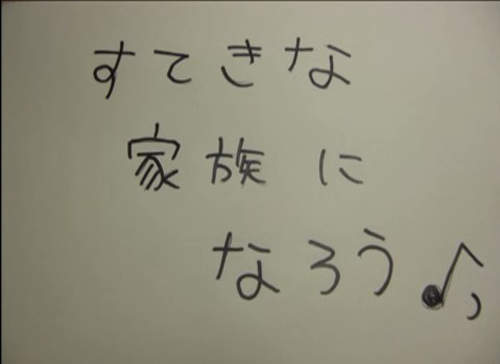 すてきな
家族に
なろう♪